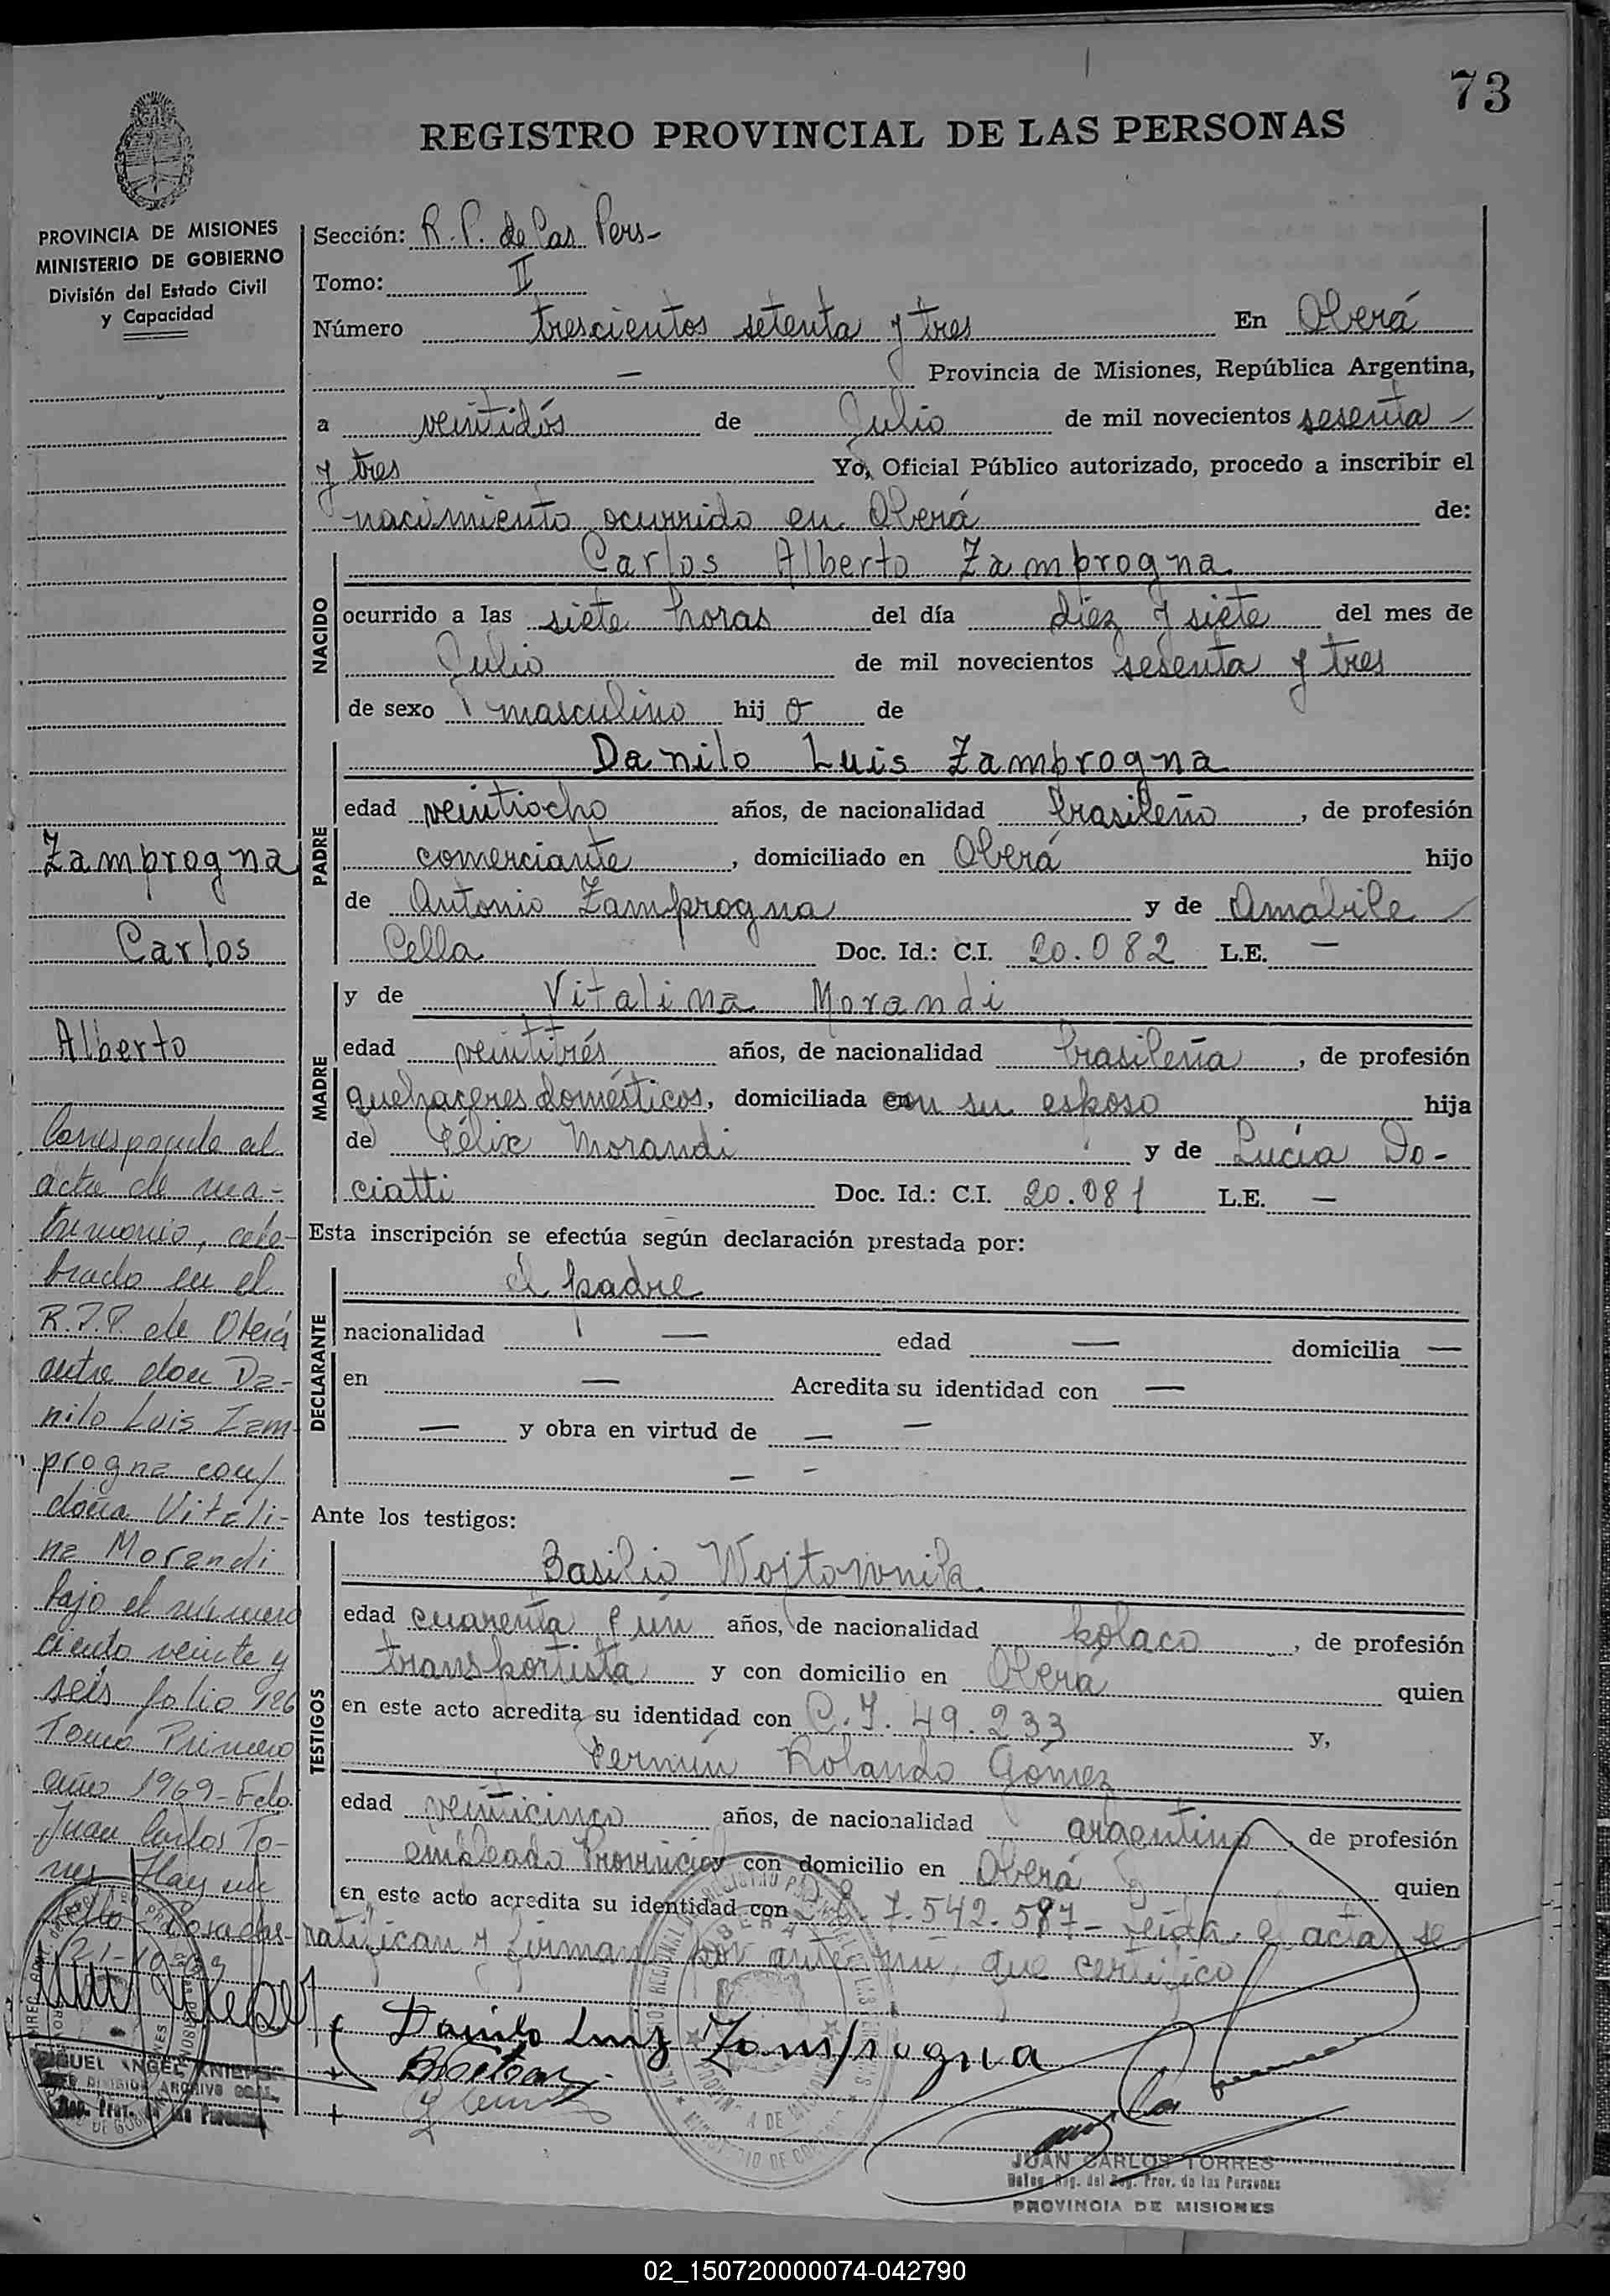 73
REGISTRO PROVINCIAL DE LAS PERSONAS
PROVINCIA DE MISIONES
MINISTERIO DE GOBIERNO
División del Estado Civil
y Capacidad
Sección: R. P. de las Pers-
Tomo: II
Número trescientos setenta y tres En Oberá
— Provincia de Misiones, República Argentina,
a veintidós de Julio de mil novecientos sesenta
y tres Yo, Oficial Público autorizado, procedo a inscribir el
nacimiento ocurrido en Oberá de:
NACIDO
Carlos Alberto Zamprogna
ocurrido a las siete horas del día diez y siete del mes de
Julio de mil novecientos sesenta y tres
de sexo masculino hijo de
PADRE
Danilo Luis Zamprogna
edad veintiocho años, de nacionalidad brasileño, de profesión
comerciante, domiciliado en Oberá hijo
de Antonio Zamprogna y de Amabile
Cella Doc. Id.: C.I. 20.082 L.E. —
MADRE
y de Vitalina Morandi
edad veintitrés años, de nacionalidad brasileña, de profesión
quehaceres domésticos, domiciliada con su esposo hija
de Félix Morandi y de Lucía Do-
ciatti Doc. Id.: C.I. 20.081 L.E. —
Esta inscripción se efectúa según declaración prestada por:
DECLARANTE
el padre
nacionalidad — edad — domicilia —
en — Acredita su identidad con —
— y obra en virtud de — —
— —
Ante los testigos:
TESTIGOS
Basilio
edad cuarenta y un años, de nacionalidad polaco, de profesión
transportista y con domicilio en Oberá quien
en este acto acredita su identidad con C.I. 49.233 y,
Fermín Rolando Gómez
edad veinticinco años, de nacionalidad argentino, de profesión
empleado Provincial y con domicilio en Oberá quien
en este acto acredita su identidad con 7.542.587- Leída el acta, se
ratifican y firman por ante mí, que certifico
Danilo Luiz Zamprogna
JUAN CARLOS TORRES
Deleg. Reg. del Reg. Prov. de las Personas
PROVINCIA DE MISIONES
Zamprogna
Carlos
Alberto
Corresponde al
acta de ma-
trimonio, cele-
brado en el
R.P.P. de Oberá
entre don Da-
nilo Luis Zam-
progna con/
doña Vitali-
na Morandi
bajo el número
ciento veinte y
seis folio 126
Tomo Primero
año 1969- Fdo.
Juan Carlos To-
rres Hay un
sello Posadas
MIGUEL ANGEL
DIVISION ARCHIVO GRAL.
Reg. Prov. de las Personas
02_150720000074-042790